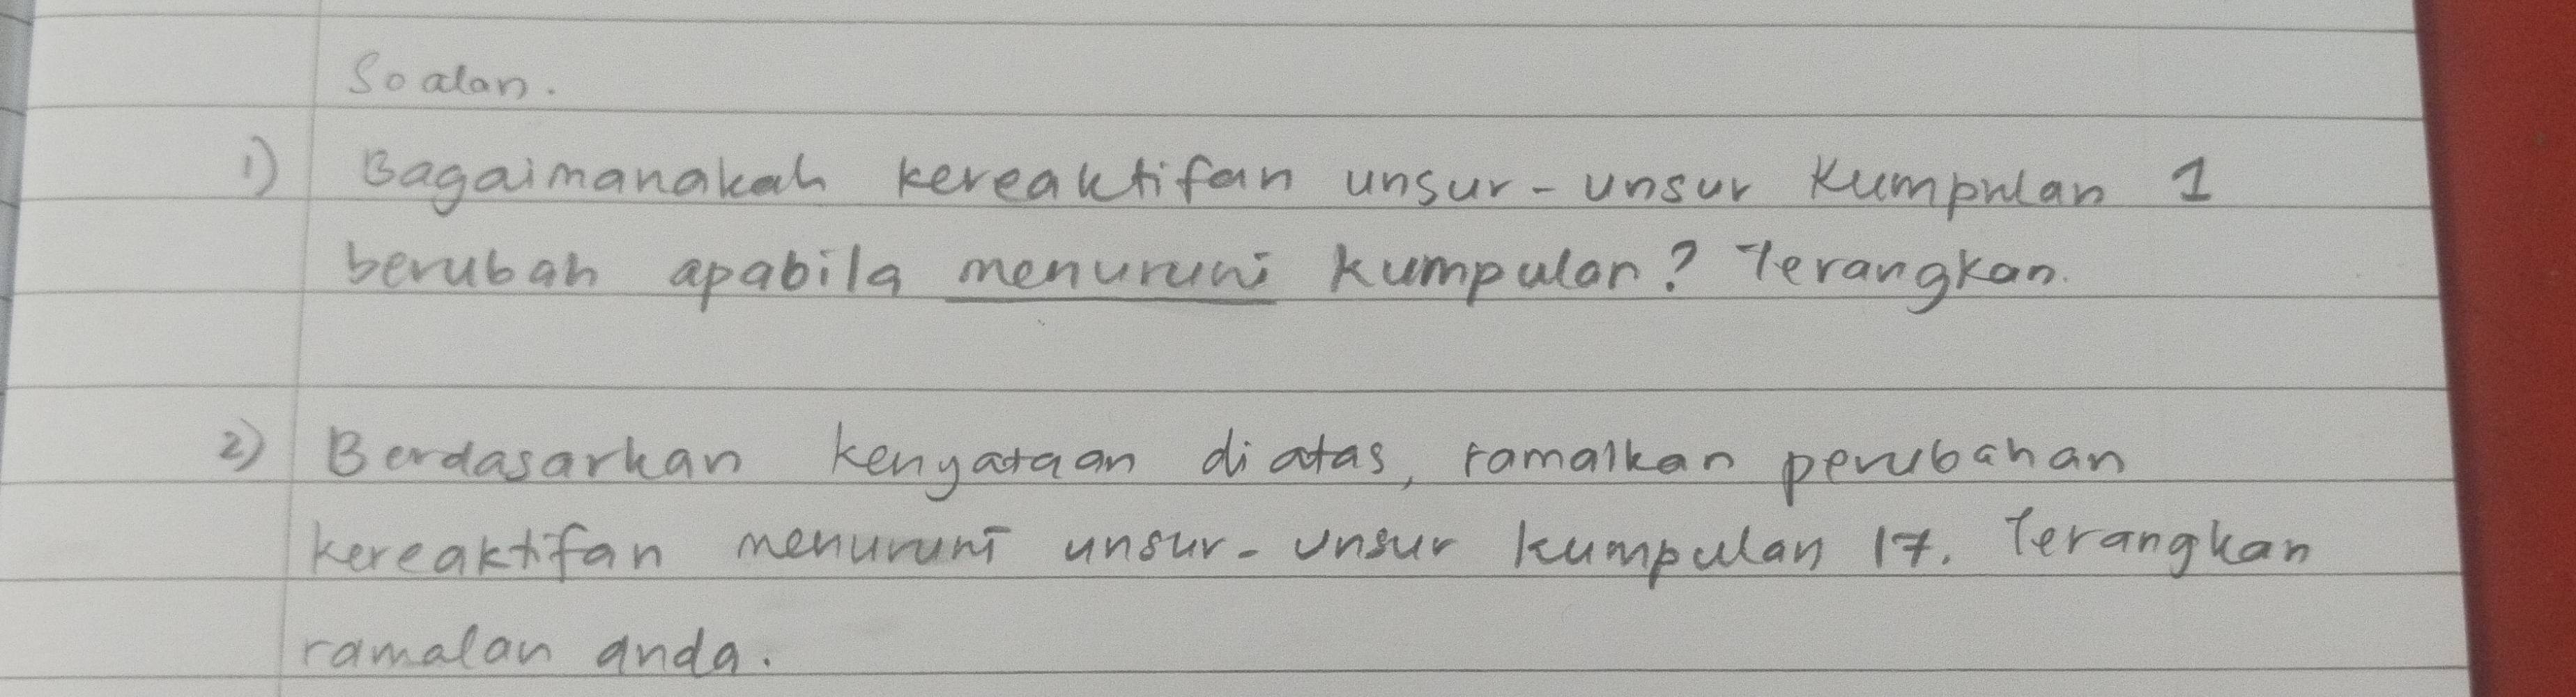 Soalan.
1) Bagaimanakah kereaktifan unsur-unsur Kumpulan 1
berubah apabila menuruni kumpulan? Terangkan.
2) Berdasarkan kenyataan diatas, ramalkan perubahan
kereaktifan menuruni unsur-unsur kumpulan 17. Terangkan
ramalan anda.